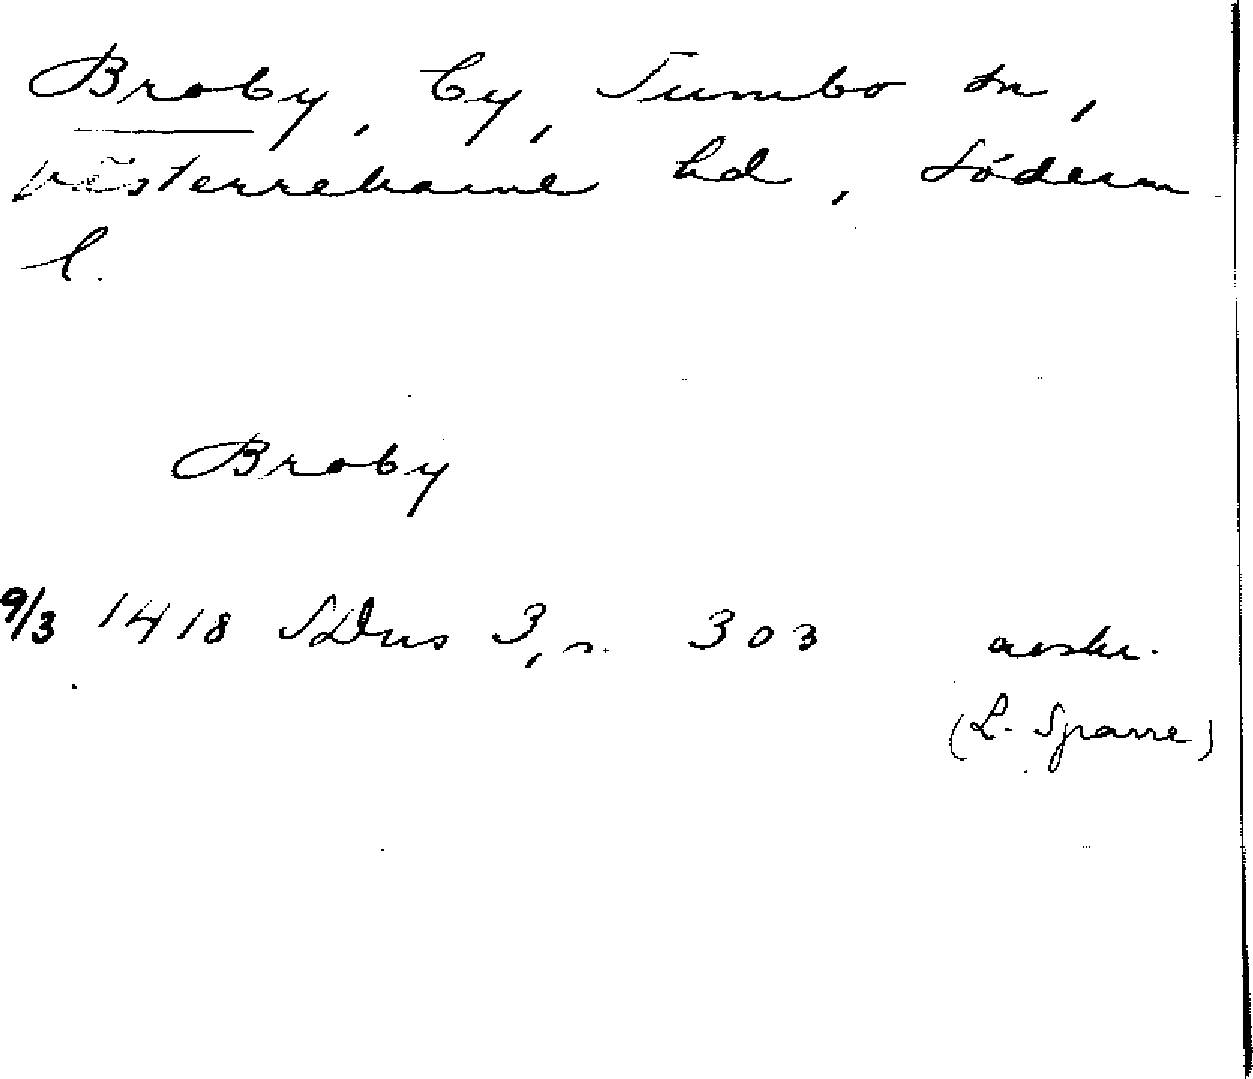 Broby, by, Tumbo sn,
Västerrekarne hd, Söderm
l.
Broby
9/3 1418 SDns 3, s. 303 avskr.
(L. Sparre)